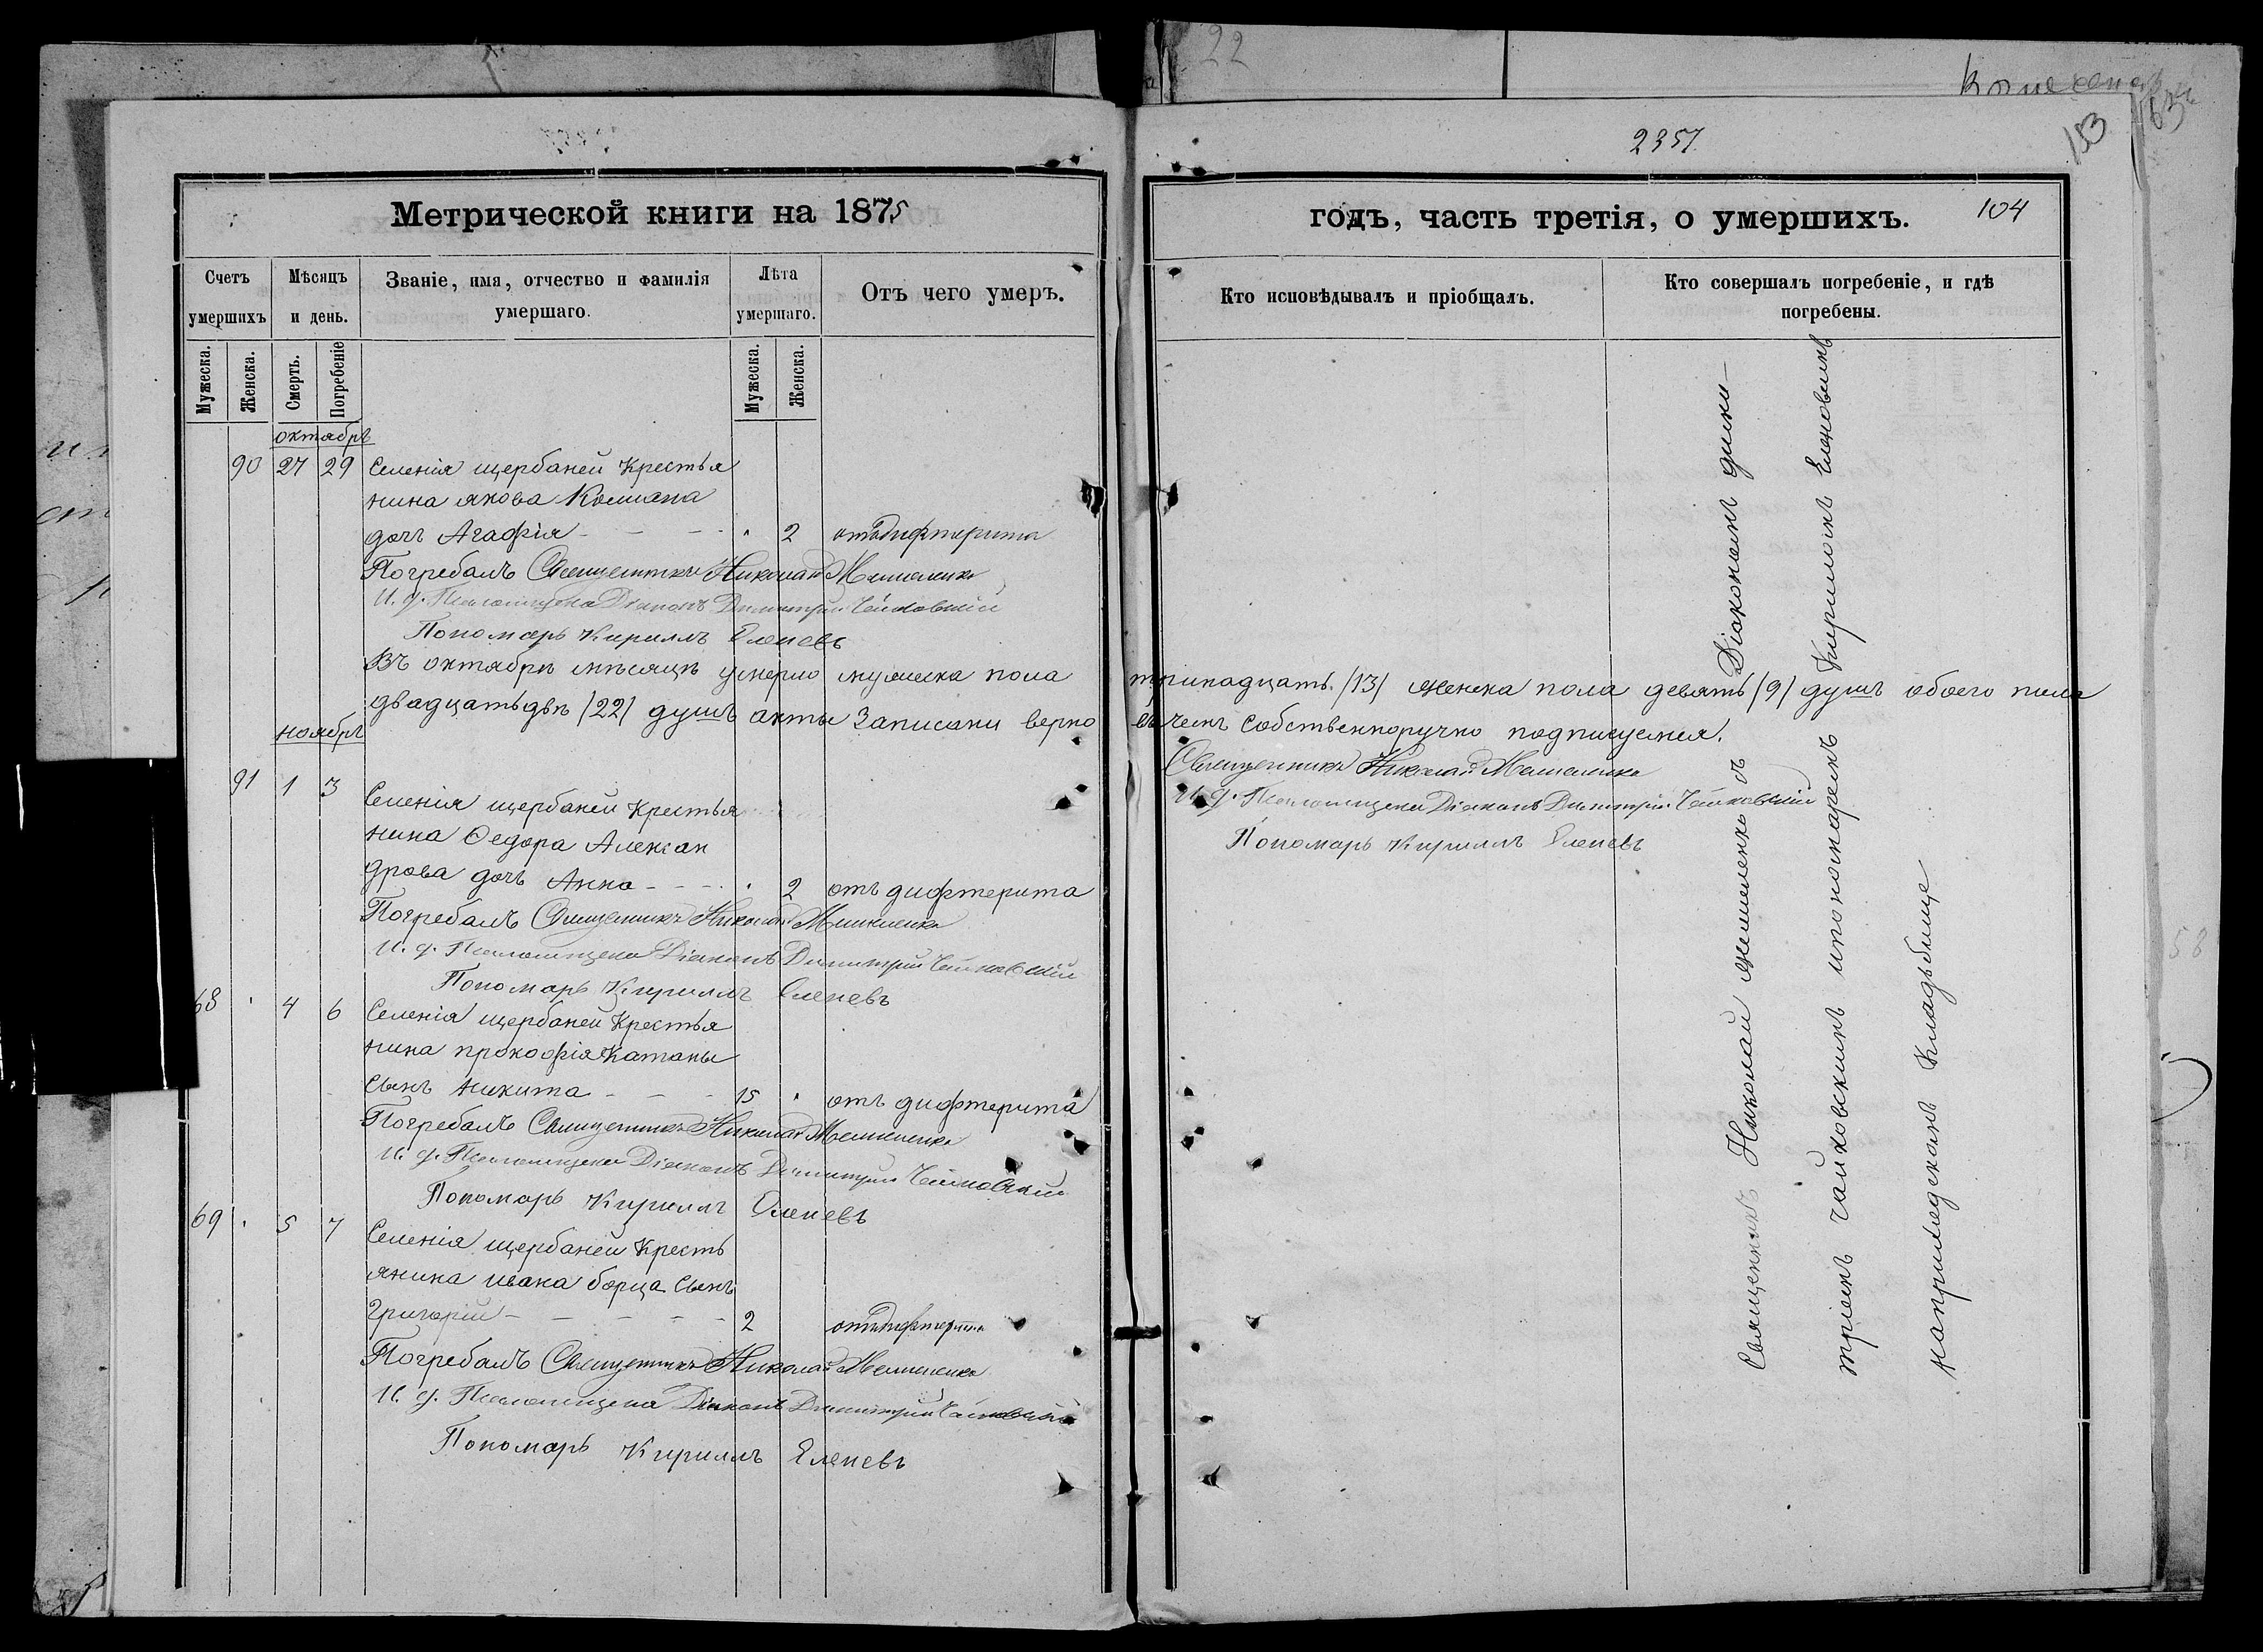 22
2357
183
163
Метрической книги на 1875
годъ, часть третія, о умершихъ.
104
Счетъ умершихъ
Мѣсяцъ и день.
Званіе, имя, отчество и фамилія умершаго.
Лѣта умершаго.
Отъ чего умеръ.
Кто исповѣдывалъ и пріобщалъ.
Кто совершалъ погребеніе, и гдѣ погребены.
Мужеска.
Женска.
Смерть.
Погребеніе
Мужеска.
Женска.
октябрь
90 27 29 Селенія щербаней Крестья
нина якова
дочь Агафія - - - " 2 отъ дифтерита
Погребалъ Священникъ Николай
И. д. Псаломщика Діаконъ Димитрій Чайковскій
Пономарь Кириллъ Еленевъ
Въ октябрѣ мѣсяцѣ умерло мужеска пола тринадцать /13/ женска пола девять /9/ душъ обоего пола
двадцать двѣ /22/ душъ акты записаны верно въ чемъ собственноручно подписуемся.
Священникъ Николай
И. д. Псаломщика Діаконъ Димитрій Чайковскій
Пономарь Кириллъ Еленевъ
ноябрь
91 1 3 Селенія щербаней Крестья
нина Ѳедора Алексан
дрова дочь Анна - - - " 2 отъ дифтерита
Погребалъ Священникъ Николай
И. д. Псаломщика Діаконъ Димитрій Чайковскій
Пономарь Кириллъ Еленевъ
68 " 4 6 Селенія щербаней Крестья
нина прокофія Катаны
сынъ Никита - - - 15 " отъ дифтерита
Погребалъ Священникъ Николай
И. д. Псаломщика Діаконъ Димитрій Чайковскій
Пономарь Кириллъ Еленевъ
69 " 5 7 Селенія щербаней Кресть
янина ивана борца сынъ
григорій - - - - - 2 отъ дифтерита
Погребалъ Священникъ Николай
И. д. Псаломщика Діаконъ Димитрій Чайковскій
Пономарь Кириллъ Еленевъ
Священникъ Николай съ Діакономъ дими-
тріемъ чайковскимъ ипономаремъ Кириломъ Еленовымъ
наприходскомъ Кладбище
58